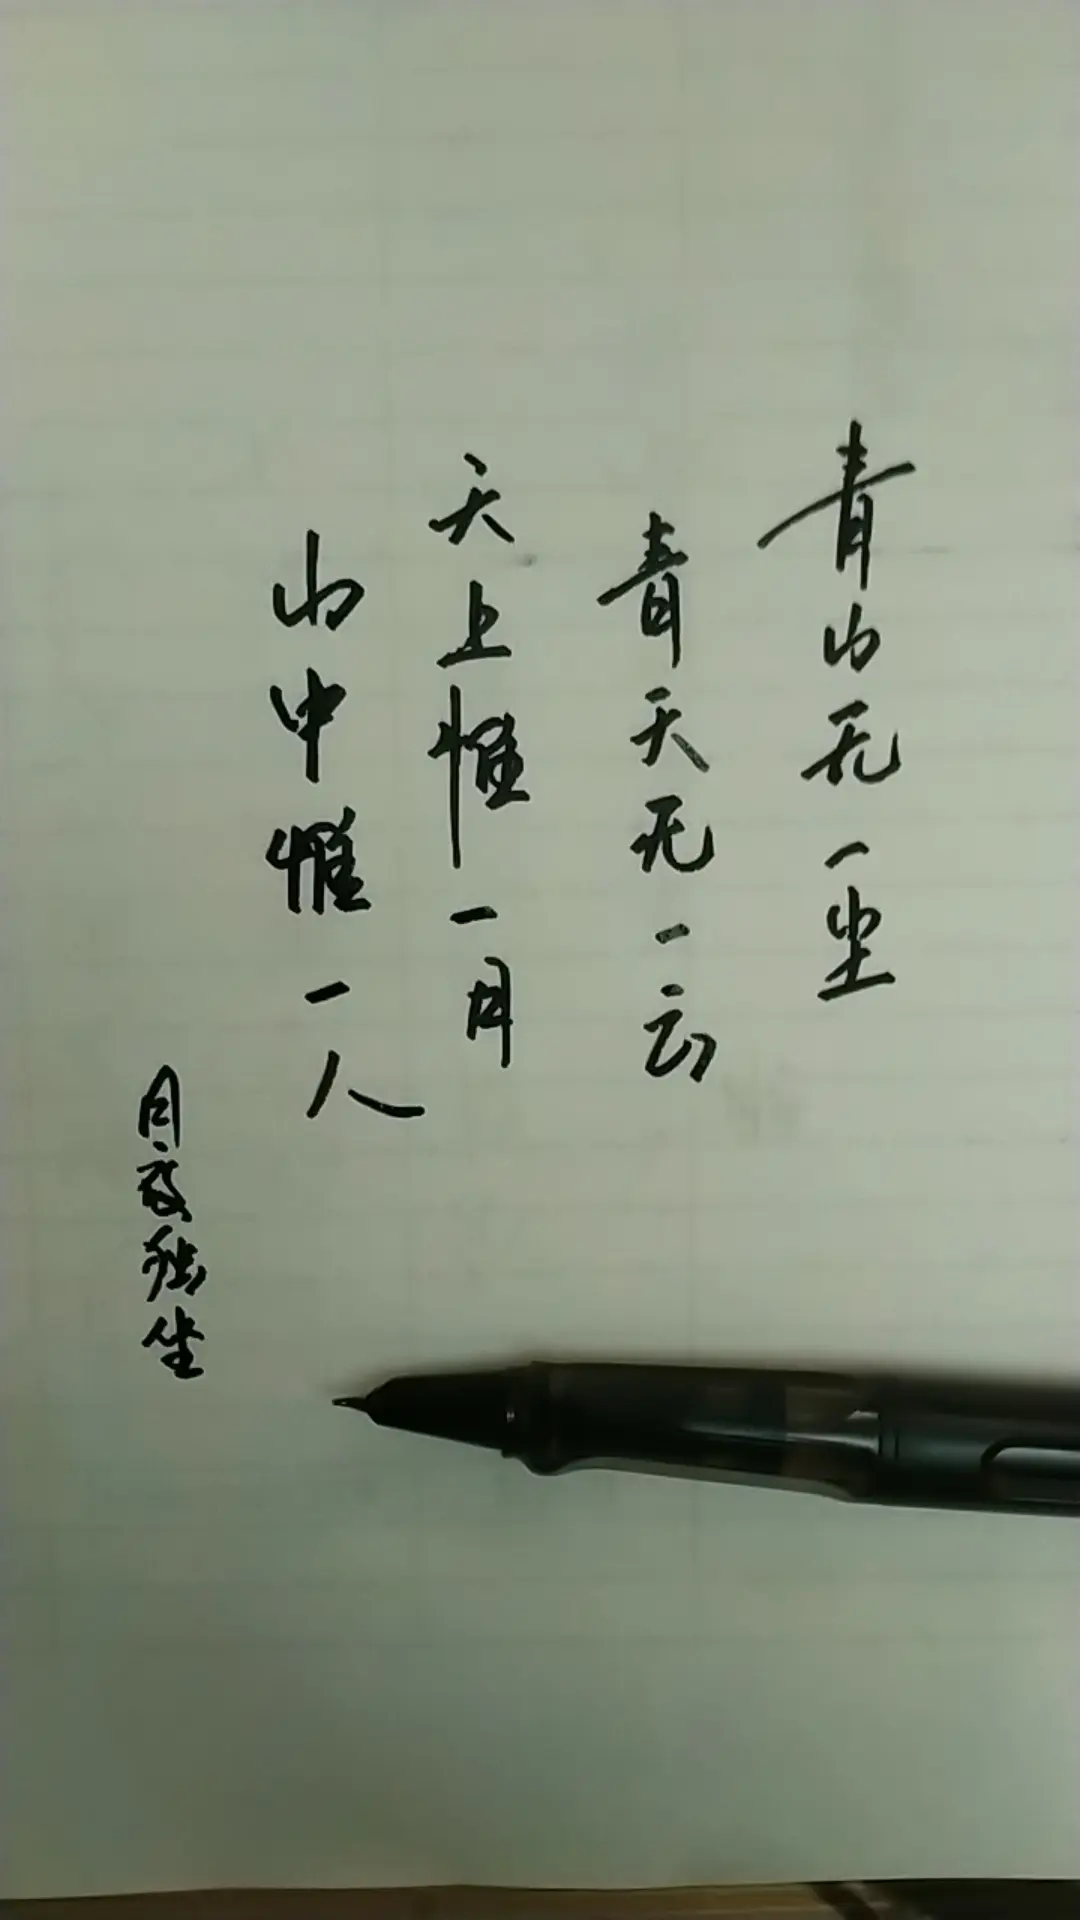 青山无一尘
青天无一云
天上惟一月
山中惟一人
月夜独坐